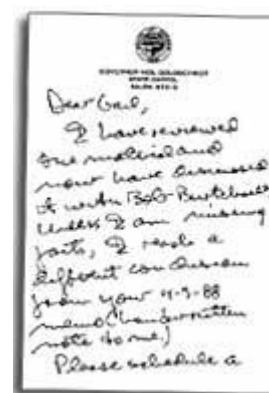 GOVERNOR NEIL GOLDSCHMIDT
STATE CAPITOL
Dear Gail,
I have reviewed
the material and
now have discussed
it with Bob
Unless I am missing
facts, I reach a
different conclusion
from your 4-9-88
memo (handwritten
note to me.)
Please schedule a